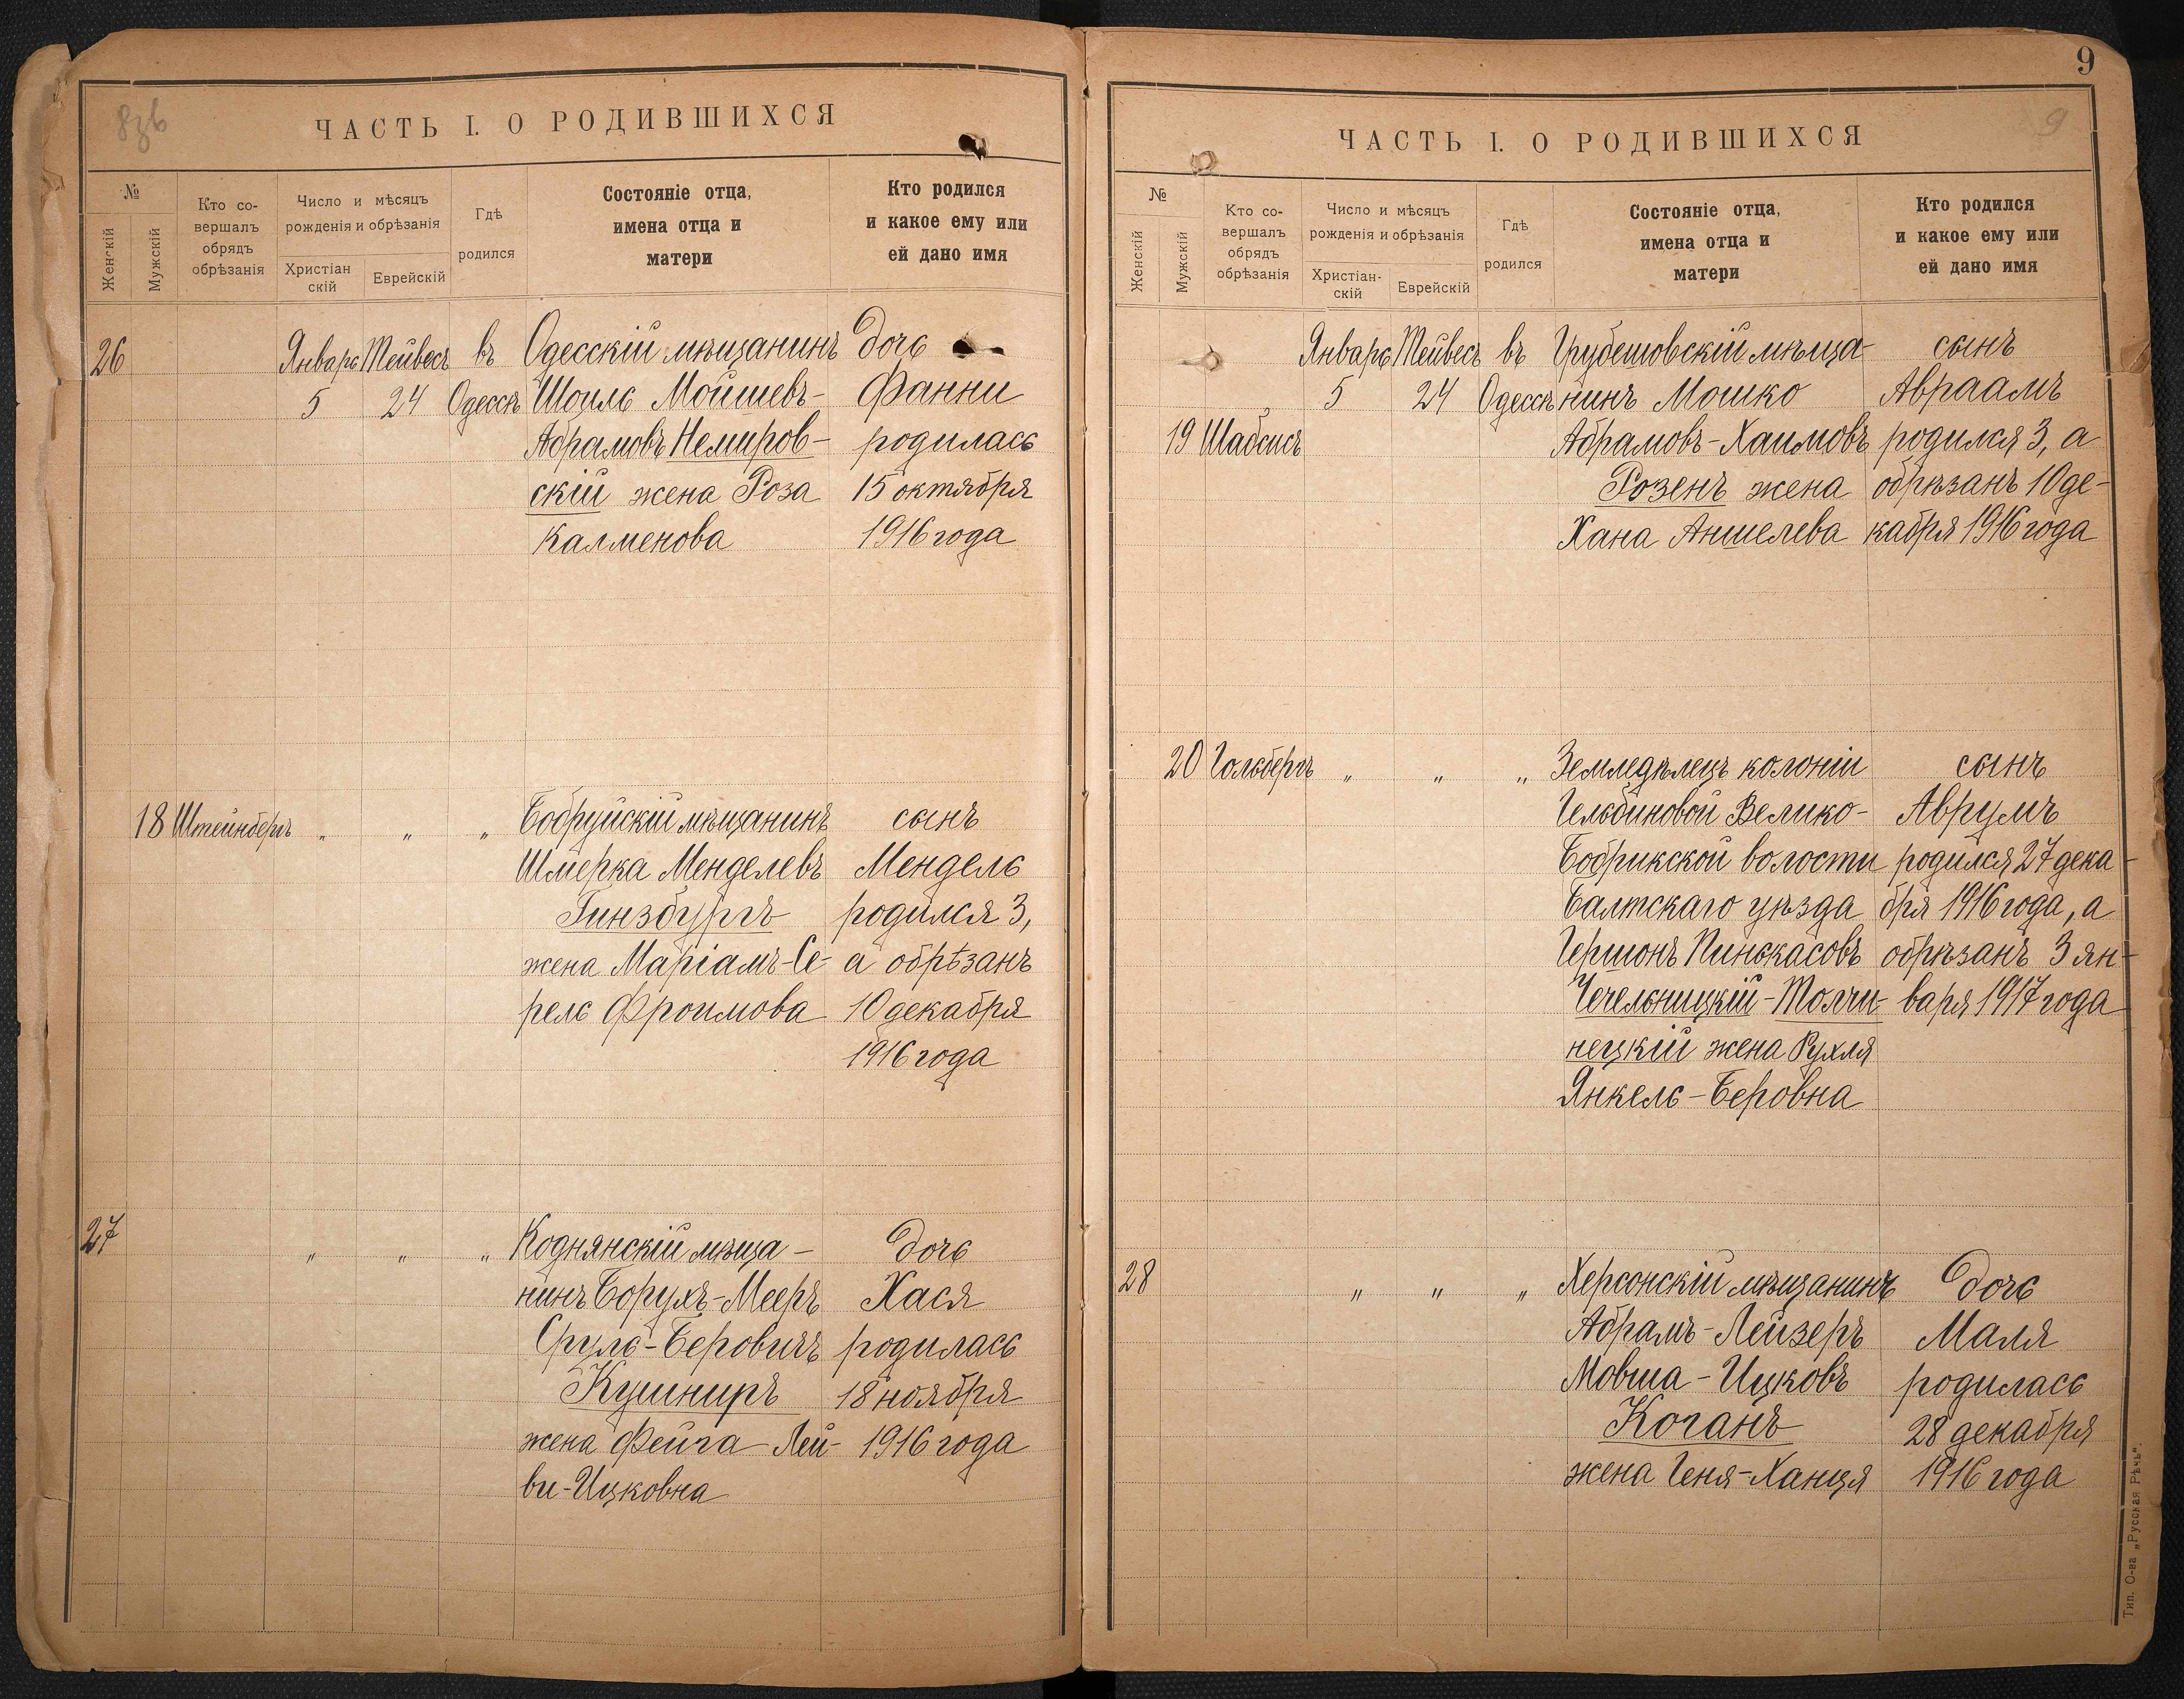 8зв
ЧАСТЬ I. О РОДИВШИХСЯ
№
Женскій
Мужскій
Кто со-
вершалъ
обрядъ
обрѣзанія
Число и мѣсяцъ
рожденія и обрѣзанія
Христіан
скій
Еврейскій
Гдѣ
родился
Состояніе отца,
имена отца и
матери
Кто родился
и какое ему или
ей дано имя
26 Январь Тейвесъ въ Одесскій мѣщанинъ дочь
5 24 Одессѣ Шоиль Мойшевъ- Фанни
Абрамовъ Немиров- родилась
скій жена Роза 15 октября
Калменова 1916 года
18 Штейнбергъ " " " Бобруйскій мѣщанинъ сынъ
Шмерка Менделевъ Мендель
Гинзбургъ родился 3,
жена Маріамъ-Се- а обрѣзанъ
рель Фроимова 10 декабря
1916 года
27 " " " Коднянскій мѣща- дочь
нинъ Борухъ-Мееръ Хася
Сруль-Беровичъ родилась
Кушниръ 18 ноября
жена Фейга Лей- 1916 года
ви-Ицковна
9
9
ЧАСТЬ I. О РОДИВШИХСЯ
№
Женскій
Мужскій
Кто со-
вершалъ
обрядъ
обрѣзанія
Число и мѣсяцъ
рожденія и обрѣзанія
Христіан-
скій
Еврейскій
Гдѣ
родился
Состояніе отца,
имена отца и
матери
Кто родился
и какое ему или
ей дано имя
Январь Тейвесъ въ Грубешовскій мѣща- сынъ
5 24 Одессѣ нинъ Мошко Авраамъ
19 Шабсисъ Абрамовъ-Хаимовъ родился 3, а
Розенъ жена обрѣзанъ 10 де-
Хана Аншелева кабря 1916 года
20 Гольбергъ " " " Земледѣлецъ колоніи сынъ
Гельбиновой Велико- Аврумъ
Бобрикской волости родился 27 дека-
Балтскаго уѣзда бря 1916 года, а
Гершонъ Пинькасовъ обрѣзанъ 3 ян-
Чечельницкій-Толчи- варя 1917 года
нецкій жена Рухля
Янкель-Беровна
28 " " " Херсонскій мѣщанинъ дочь
Абрамъ-Лейзеръ Маля
Мовша-Ицковъ родилась
Коганъ 28 декабря
жена Геня-Ханця 1916 года
Тип. О-ва „Русская Рѣчь".